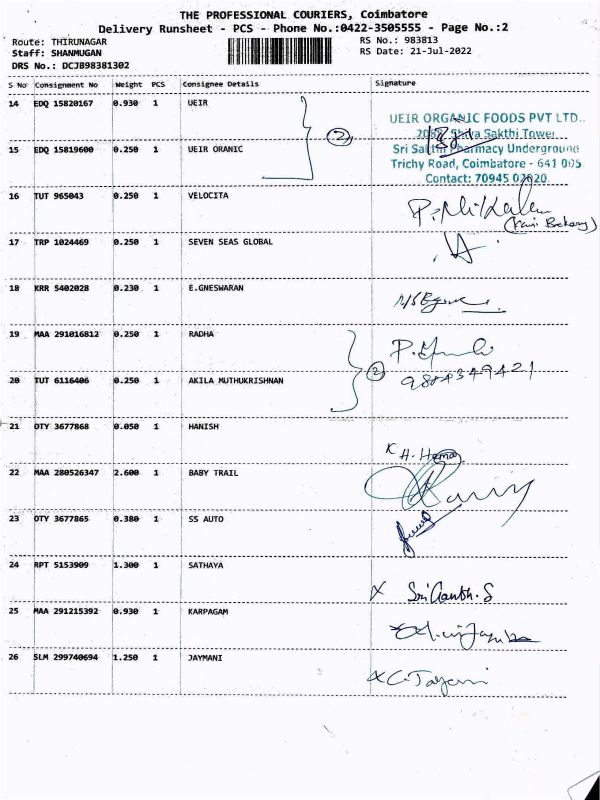 THE PROFESSIONAL COURIERS, Coimbatore
Delivery Runsheet - PCS - Phone No.:0422-3505555 - Page No.:2
Route: THIRUNAGAR
RS No.: 983813
Staff: SHANMUGAN
RS Date: 21-Jul-2022
DRS No.: DCJB98381302
S No Consignment No Weight PCS Consignee Details Signature
14 EDQ 15820167 0.930 1 UEIR
UEIR ORGANIC FOODS PVT LTD..
Shiva Sakthi Tower
2
15 EDQ 15819600 0.250 1 UEIR ORANIC
Sri Sakthi Pharmacy Underground
Trichy Road, Coimbatore - 641 005
Contact: 70945 02020
16 TUT 965043 0.250 1 VELOCITA
17 TRP 1024469 0.250 1 SEVEN SEAS GLOBAL
18 KRR 5402028 0.230 1 E.GNESWARAN
19 MAA 291016812 0.250 1 RADHA
2
20 TUT 6116406 0.250 1 AKILA MUTHUKRISHNAN
9884349421
21 OTY 3677868 0.050 1 HANISH
22 MAA 280526347 2.600 1 BABY TRAIL
23 OTY 3677865 0.380 1 SS AUTO
24 RPT 5153909 1.300 1 SATHAYA
25 MAA 291215392 0.930 1 KARPAGAM
26 SLM 299740694 1.250 1 JAYMANI